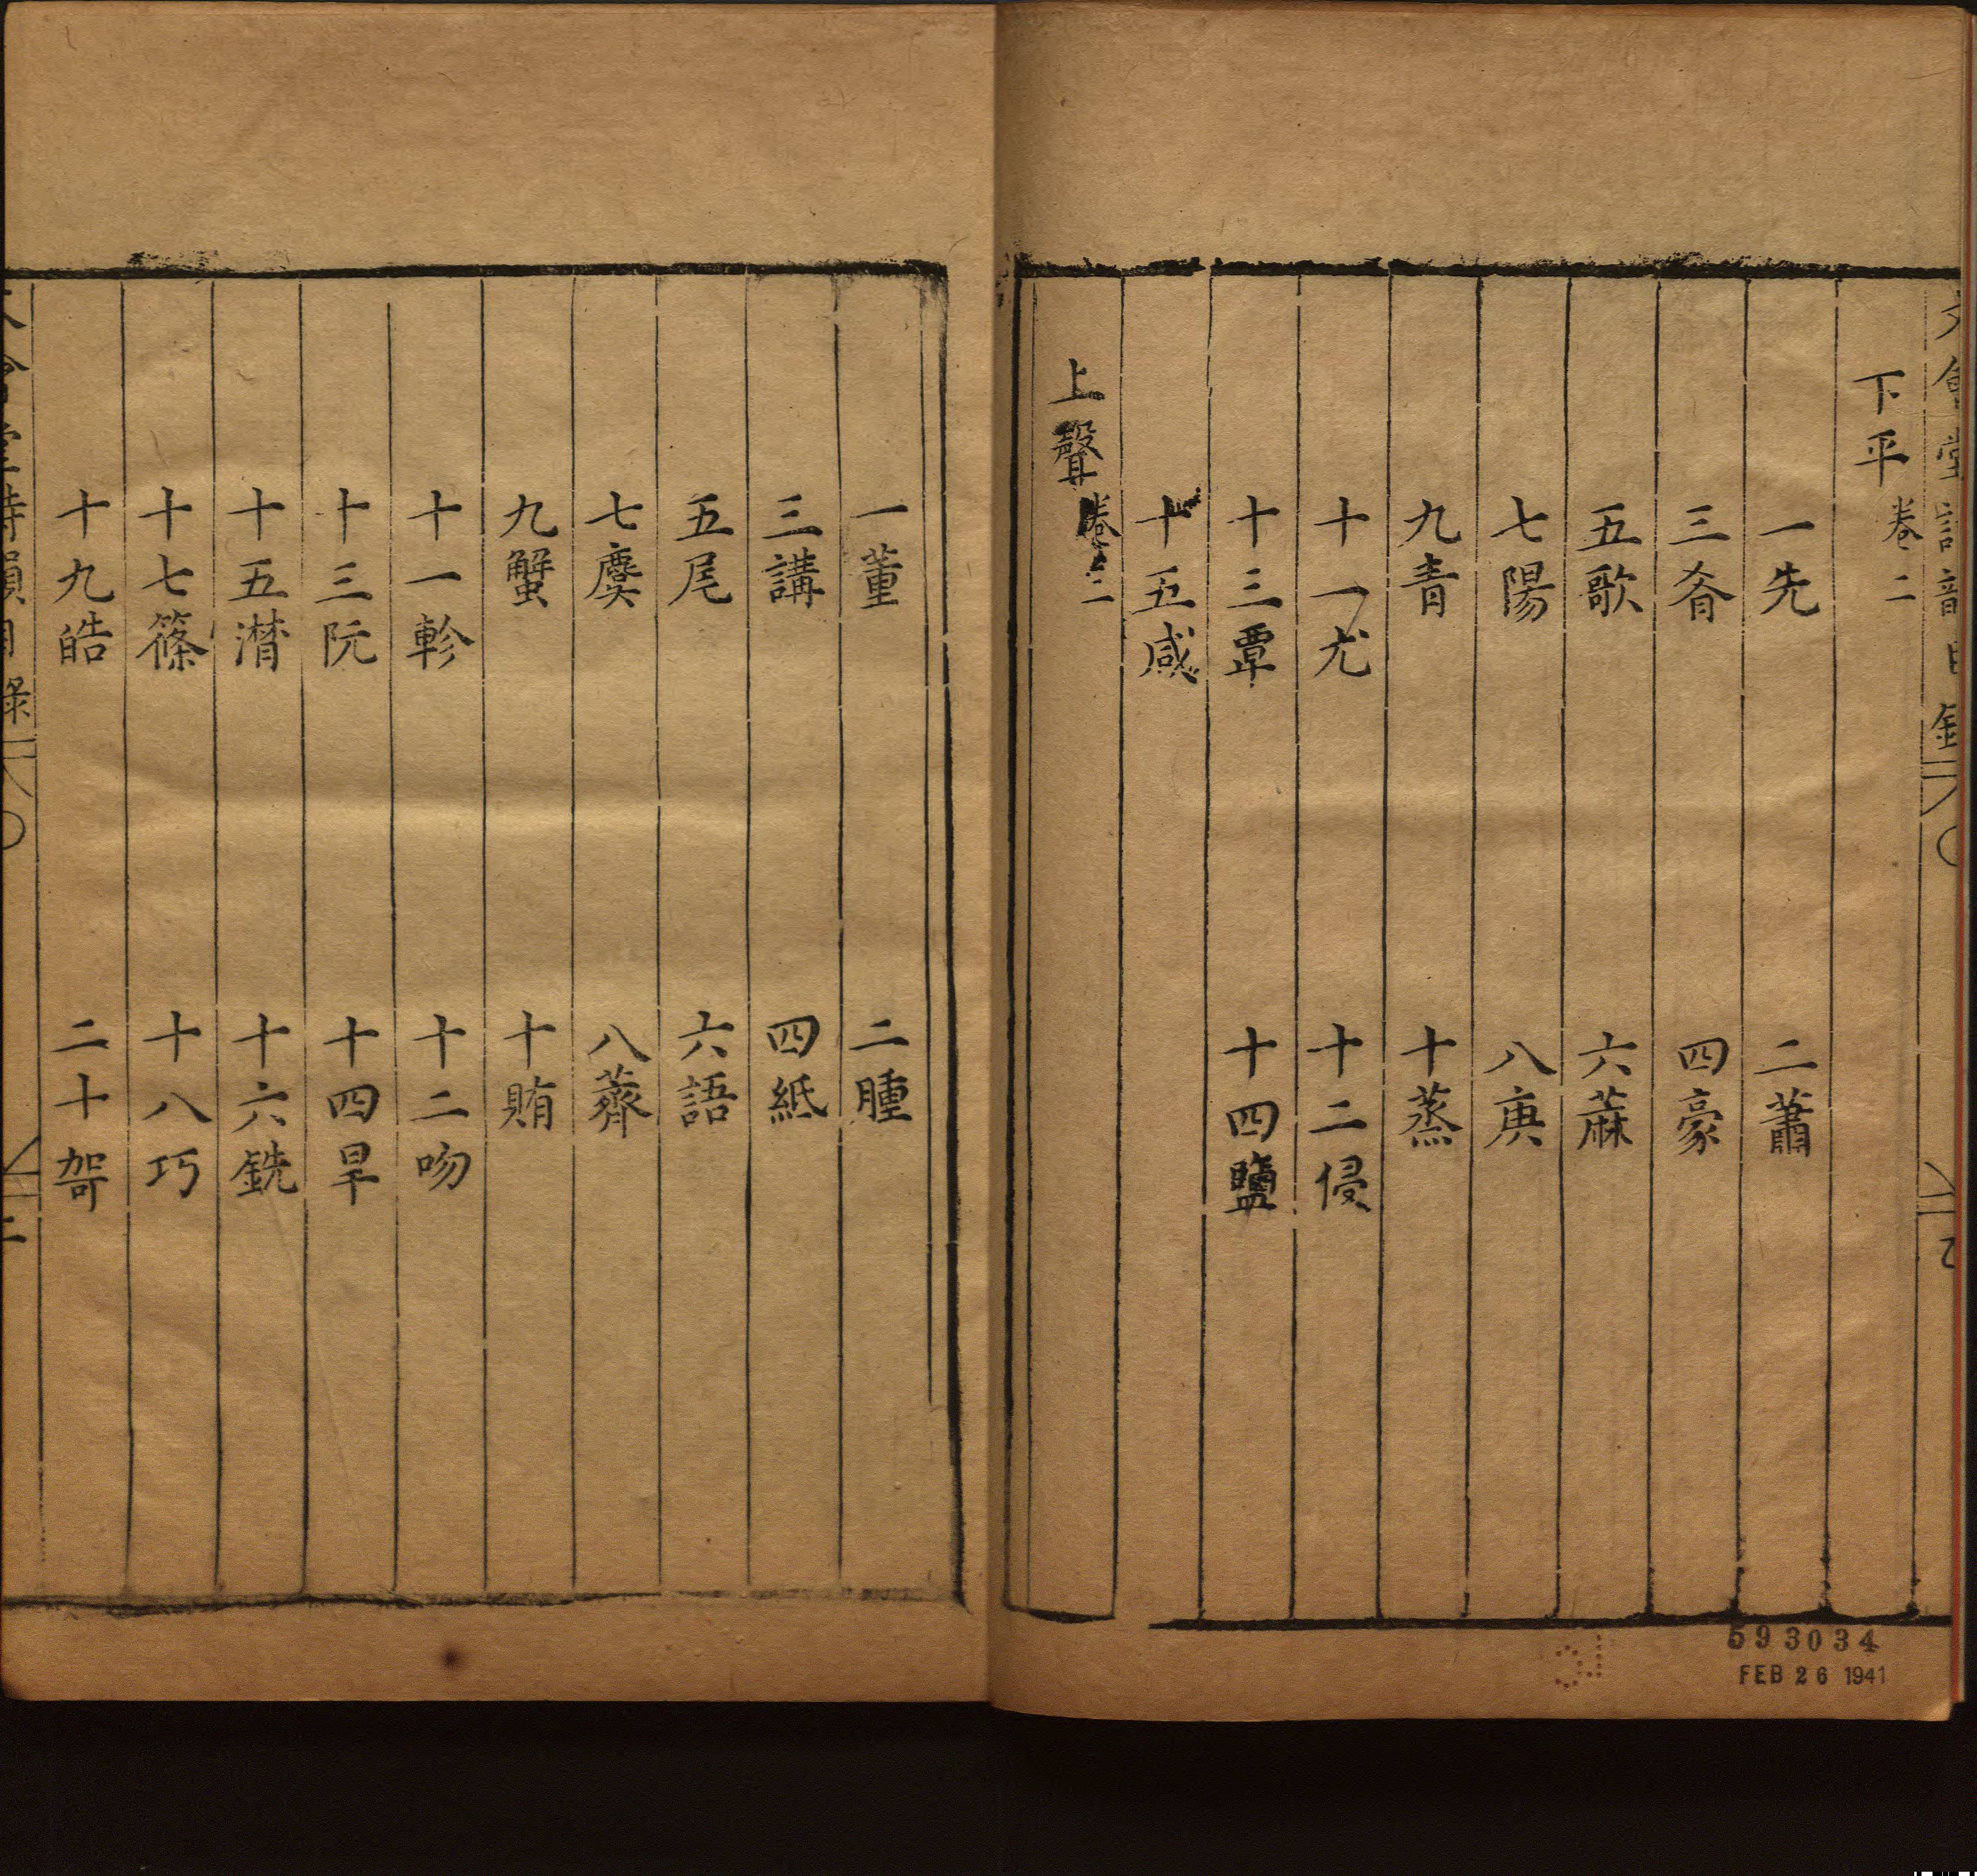 下平卷二
一先 二蕭
三肴 四豪
五歌 六蔴
七陽 八庚
九青 十蒸
十一尤 十二侵
十三覃 十四鹽
十五咸
上聲卷三
一董 二腫
三講 四紙
五尾 六語
七麌 八薺
九蟹 十賄
十一軫 十二吻
十三阮 十四旱
十五潸 十六銑
十七篠 十八巧
十九皓 二十哿
593034
FEB 26 1941